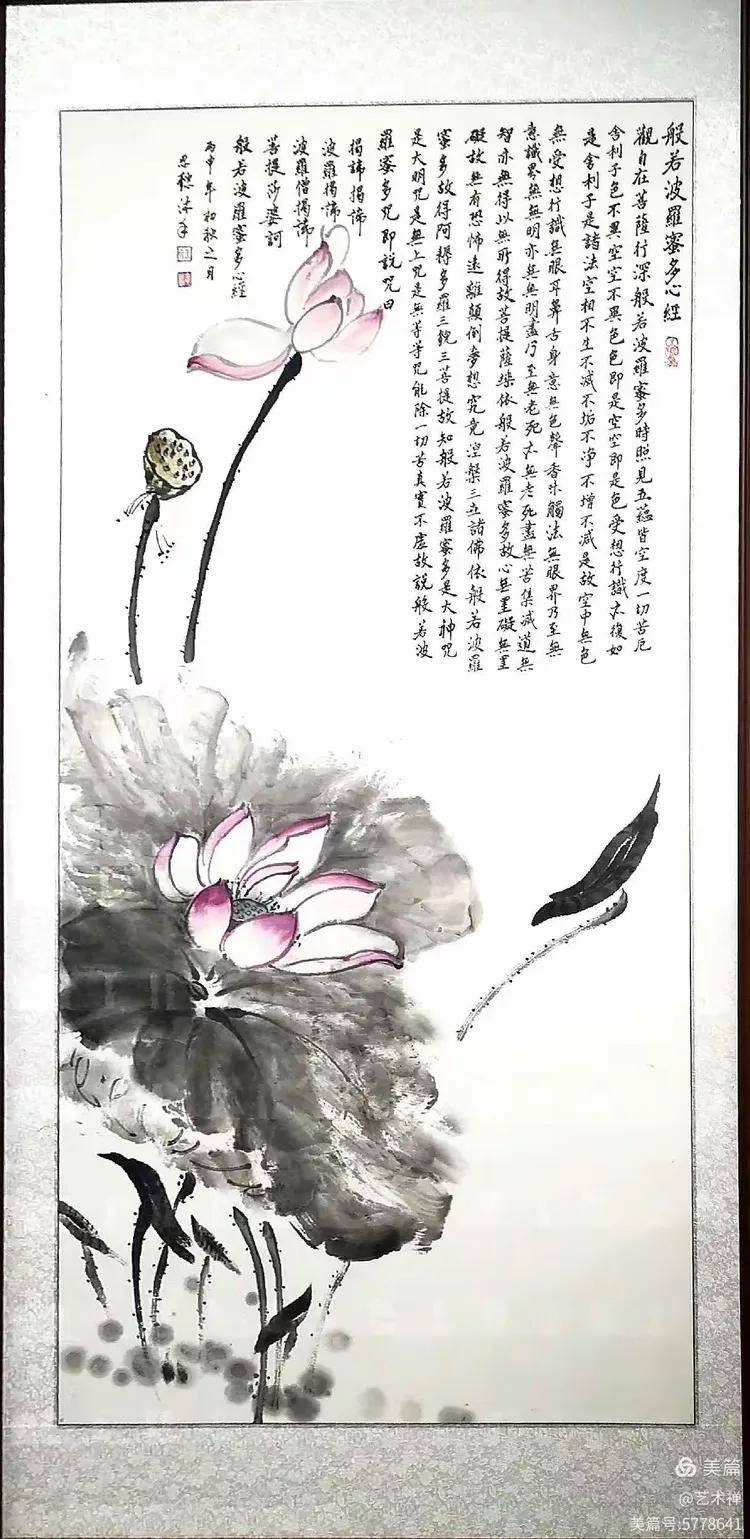 般若波羅蜜多心經
觀自在菩薩行深般若波羅蜜多時照見五蘊皆空度一切苦厄
舍利子色不異空空不異色色即是空空即是色受想行識亦復如
是舍利子是諸法空相不生不滅不垢不净不增不減是故空中無色
無受想行識無眼耳鼻舌身意無色聲香味觸法無眼界乃至無
意識界無無明亦無無明盡乃至無老死亦無老死盡無苦集滅道無
智亦無得以無所得故菩提薩埵依般若波羅蜜多故心無罣礙無罣
礙故無有恐怖遠離顛倒夢想究竟涅槃三世諸佛依般若波羅
蜜多故得阿耨多羅三藐三菩提故知般若波羅蜜多是大神咒
是大明咒是無上咒是無等等咒能除一切苦真實不虛故說般若波
羅蜜多咒即說咒曰
揭諦揭諦
波羅揭諦
波羅僧揭諦
菩提莎婆訶
般若波羅蜜多心經
丙申年初秋之月
美篇
@艺术禅
美篇号:5778641